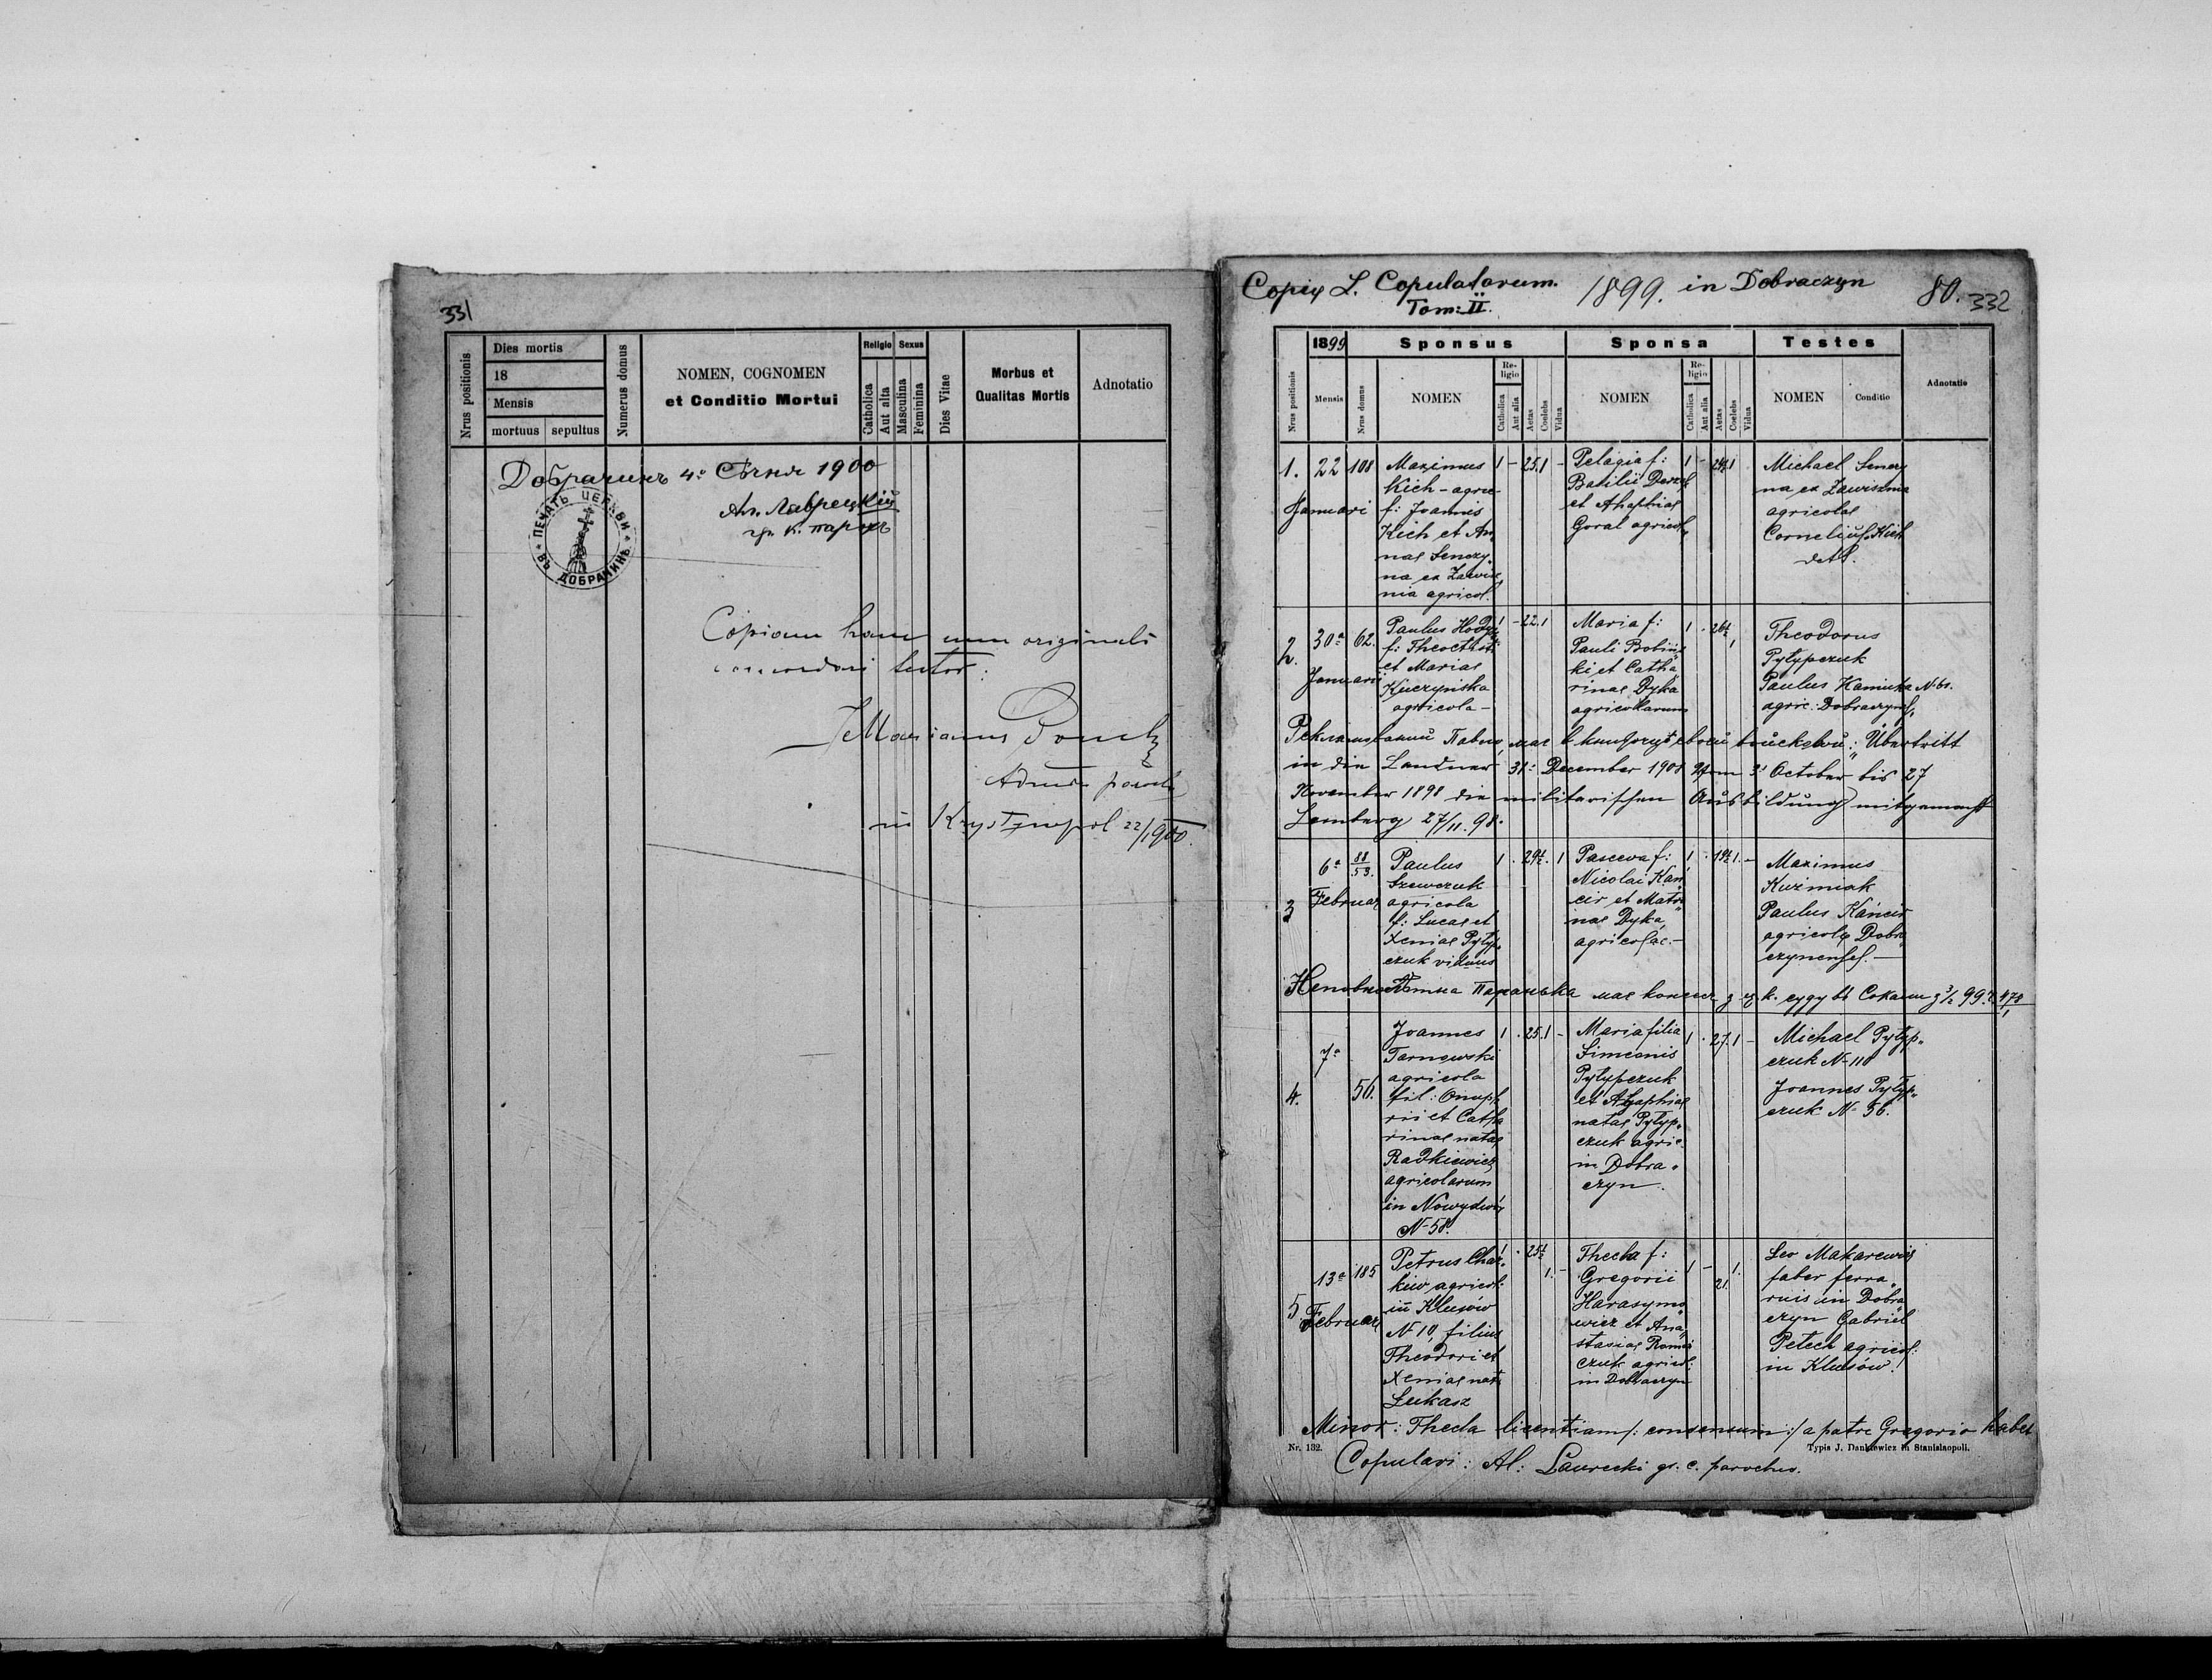 331
Nrus positionis
Dies mortis
18
Mensis
mortuus sepultus
Numerus domus
NOMEN, COGNOMEN
et Conditio Mortui
Religio
Catholica
Aut alia
Sexus
Masculina
Feminina
Dies Vitae
Morbus et
Qualitas Mortis
Adnotatio
Добрачинъ 4го Сѣчня 1900
Ал. Лаврецкій
гр. к. парохъ
ПЕЧАТЬ ЦЕРКВИ
ВЪ ДОБРАЧИНѢ
Copiam hanc cum originali
concordari testor:
Marianus
Admin. paroch.
in Krystynopol 22/1 900.
Copia L. Copulatorum. 1899. in Dobraczyn 80. 332
Tom: II.
Nrus positionis
1899
Mensis
Nrus domus
Sponsus
NOMEN
Religio
Catholica
Aut alia
Aetas
Coelebs
Vidua
Sponsa
NOMEN
Religio
Catholica
Aut alia
Aetas
Coelebs
Vidua
Testes
NOMEN
Conditio
Adnotatio
1. 22 Januari 108
Maximus
Kich - agric-
f: Joannis
Kich et An„
nae Senczy„
na ex Zawisz„
nia agricol.
1 - 25. 1 -
Pelagia f:
Basilii
et Ahaphiae
Goral agricol„
1 - 24½ 1
Michael Senczy
na ex Zawisznia
agricolae
Cornelius Kich
2. 30a Januarii 62.
Paulus
f: Theoctisti
et Mariae
Kuczynska
agricola -
1 - 22. 1
Maria f:
Pauli Bobiń„
ki et Catha„
rinae Dyka
agricolarum
1 - 26½ 1
Theodorus
Pyłypczuk
Paulus Kaminka N 61.
agric: Dobraczyns„
in die Landwer 31: December 1908 Vom 3: October bis 27
November 1898 die militärischen Ausbildung mitgemacht
Lemberg 27/11. 98.
3 6a Februar 88/53.
Paulus
Szewczuk
agricola
f: Lucae et
Xeniae Pyłyp„
czuk viduus
1 . 29½. 1
Pasceva f:
Nicolai Kań„
cir et Matro„
nae Dyka
agricolae.-
1 . 19½ 1. -
Maximus
Kuźmiak
Paulus Kańcir
agricolae Dobra„
czynenses. -
Паранька мае консенс з ц. к. суду въ Сокали з 3/2 99. 478/1
4. 7a 56.
Joannes
Tarnowski
agricola
fil: Onuph„
rii et Catha
rinae natae
Radkiewicz
agricolarum
in Nowydwór
N- 58.
1 . 25. 1 -
Maria filia
Simeonis
Pyłypczuk
et Ahaphiae
natae Pyłyp„
czuk agric.
in Dobra„
czyn.
1 . 27. 1 -
Michael Pyłyp„
czuk N- 118
Joannes Pyłyp„
czuk N- 56.
5. 13a Februar 185
Petrus Char„
kiw agricol.
in Klusów
N 10, filius
Theodori et
Xeniae nat.
Łukasz
1 . 25½ 1. -
Thecla f:
Gregorii
Harasymo„
wicz et Ana„
stasiae Roma„
czuk agricol.
in Dobraczyn
1 - 21. 1.
Leo Makarewicz
faber ferra„
rius in Dobra„
czyn Gabriel
Petech agricol:
in Klusów!
Minor: Thecla licentiam /: consensum :/ a patre Gregorio habet
Nr. 132. Typis J. Dankiewicz in Stanislaopoli.
Copulavi: Al: Laurecki gr. c. parochus.